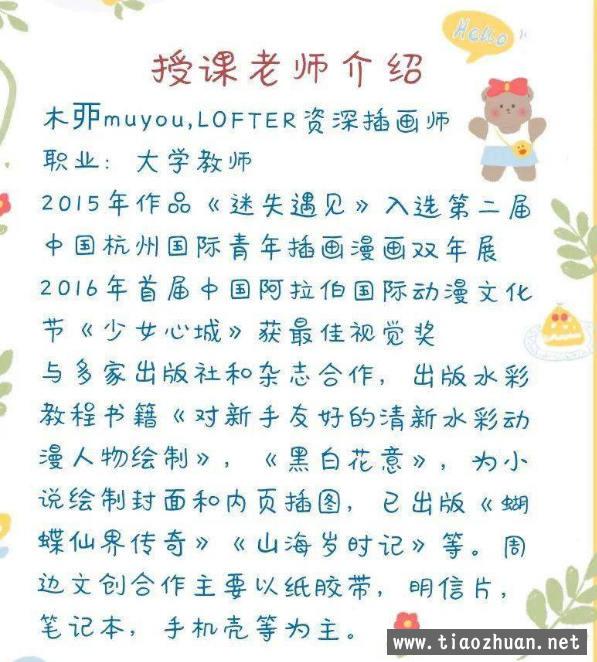 Hello
授课老师介绍
木丣muyou,LOFTER资深插画师
职业：大学教师
2015年作品《迷失遇见》入选第二届
中国杭州国际青年插画漫画双年展
2016年首届中国阿拉伯国际动漫文化
节《少女心城》获最佳视觉奖
与多家出版社和杂志合作，出版水彩
教程书籍《对新手友好的清新水彩动
漫人物绘制》，《黑白花意》，为小
说绘制封面和内页插图，已出版《蝴
蝶仙界传奇》《山海岁时记》等。周
边文创合作主要以纸胶带，明信片，
笔记本，手机壳等为主。
www.tiaozhuan.net